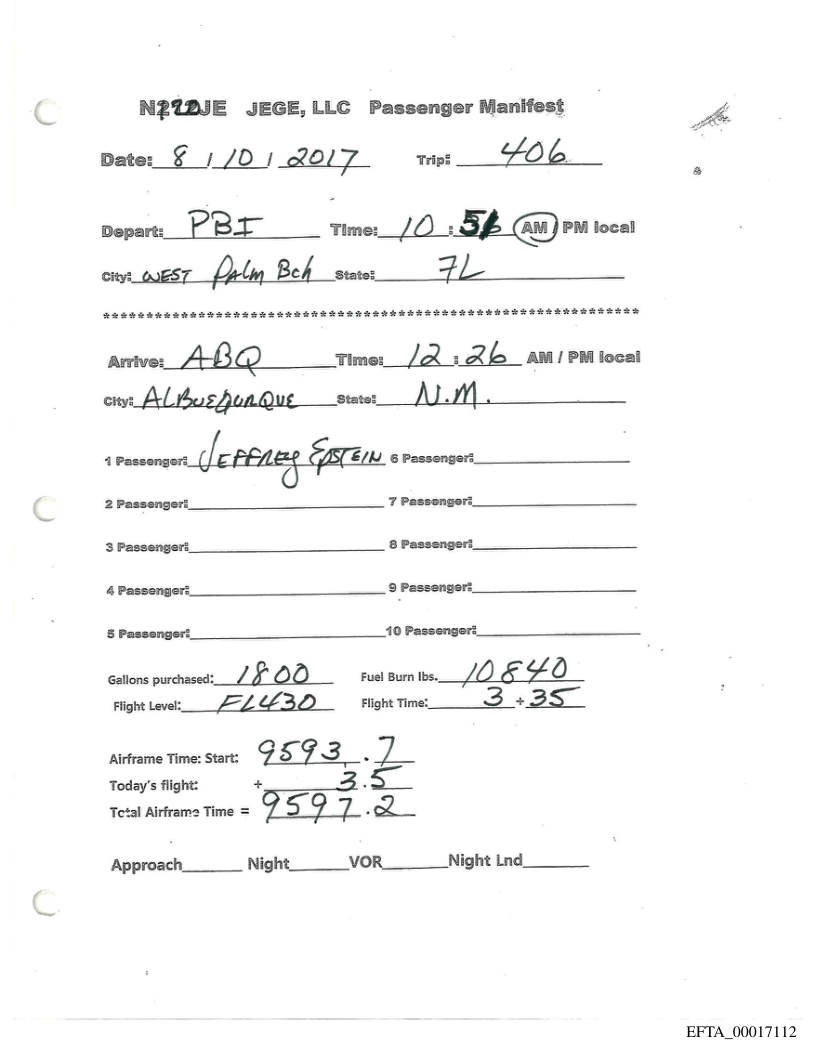 N212JE JEGE, LLC Passenger Manifest
Date: 8 / 10 / 2017 Trip: 406
Depart: PBI Time: 10 : 51 AM / PM local
City: WEST PAlm Bch State: 7L
************************************************************
Arrive: ABQ Time: 12 : 26 AM / PM local
City: ALBUEQURQUE State: N.M.
1 Passenger: JEFFREY EPSTEIN 6 Passenger:
2 Passenger: 7 Passenger:
3 Passenger: 8 Passenger:
4 Passenger: 9 Passenger:
5 Passenger: 10 Passenger:
Gallons purchased: 1800 Fuel Burn lbs. 10840
Flight Level: FL430 Flight Time: 3 + 35
Airframe Time: Start: 9593.7
Today's flight: + 3.5
Total Airframe Time = 9597.2
Approach Night VOR Night Lnd
EFTA_00017112